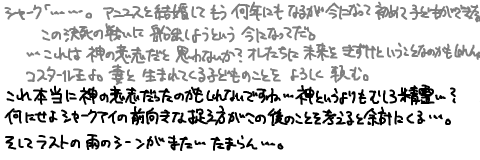 シャーク「……。アニエスと結婚してもう何年にもなるが今になって初めて子どもができる
この決死の戦いに船出しようという今になってだ。
…これは神の意志だと思わないか？オレたちに未来をきずけということなのかもしれん。
コスタール王よ。妻と生まれてくる子どものことをよろしく頼む。
これ本当に神の意志だったのかもしんないですね…神というよりもむしろ精霊…？
何にせよシャークアイの前向きな捉え方がこの後のことを考えると余計にくる…。
そしてラストの雨のシーンがまた…たまらん…。